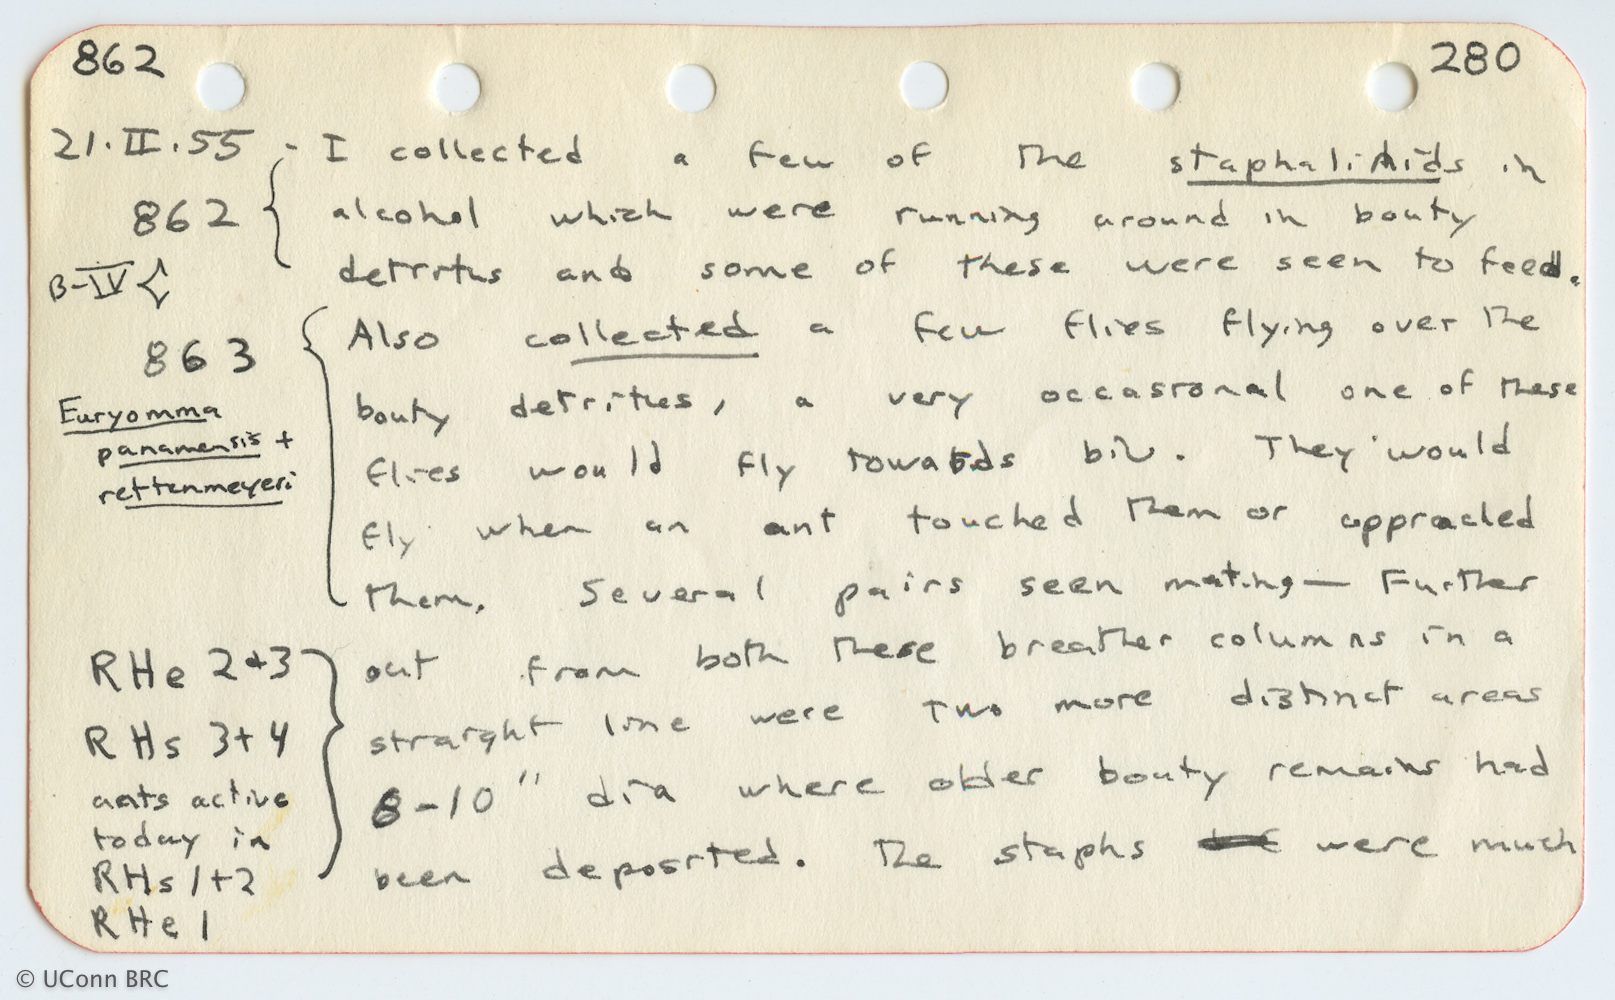 862 280
21.II.55 - I collected a few of the staphalinids in
862 alcohol which were running around in bouty
B-IV detritus and some of these were seen to feed.
863 Also collected a few flies flying over the
Euryomma bouty detritus, a very occasional one of these
panamensis + flies would fly towards biv. They would
rettenmeyeri fly when an ant touched them or appracled
them. Several pairs seen mating — Further
RHe 2+3 out from both these breather columns in a
RHs 3+4 straight line were two more distinct areas
ants active 8-10" dia where older bouty remains had
today in been deposited. The staphs were much
RHs 1+2
RHe 1
© UConn BRC